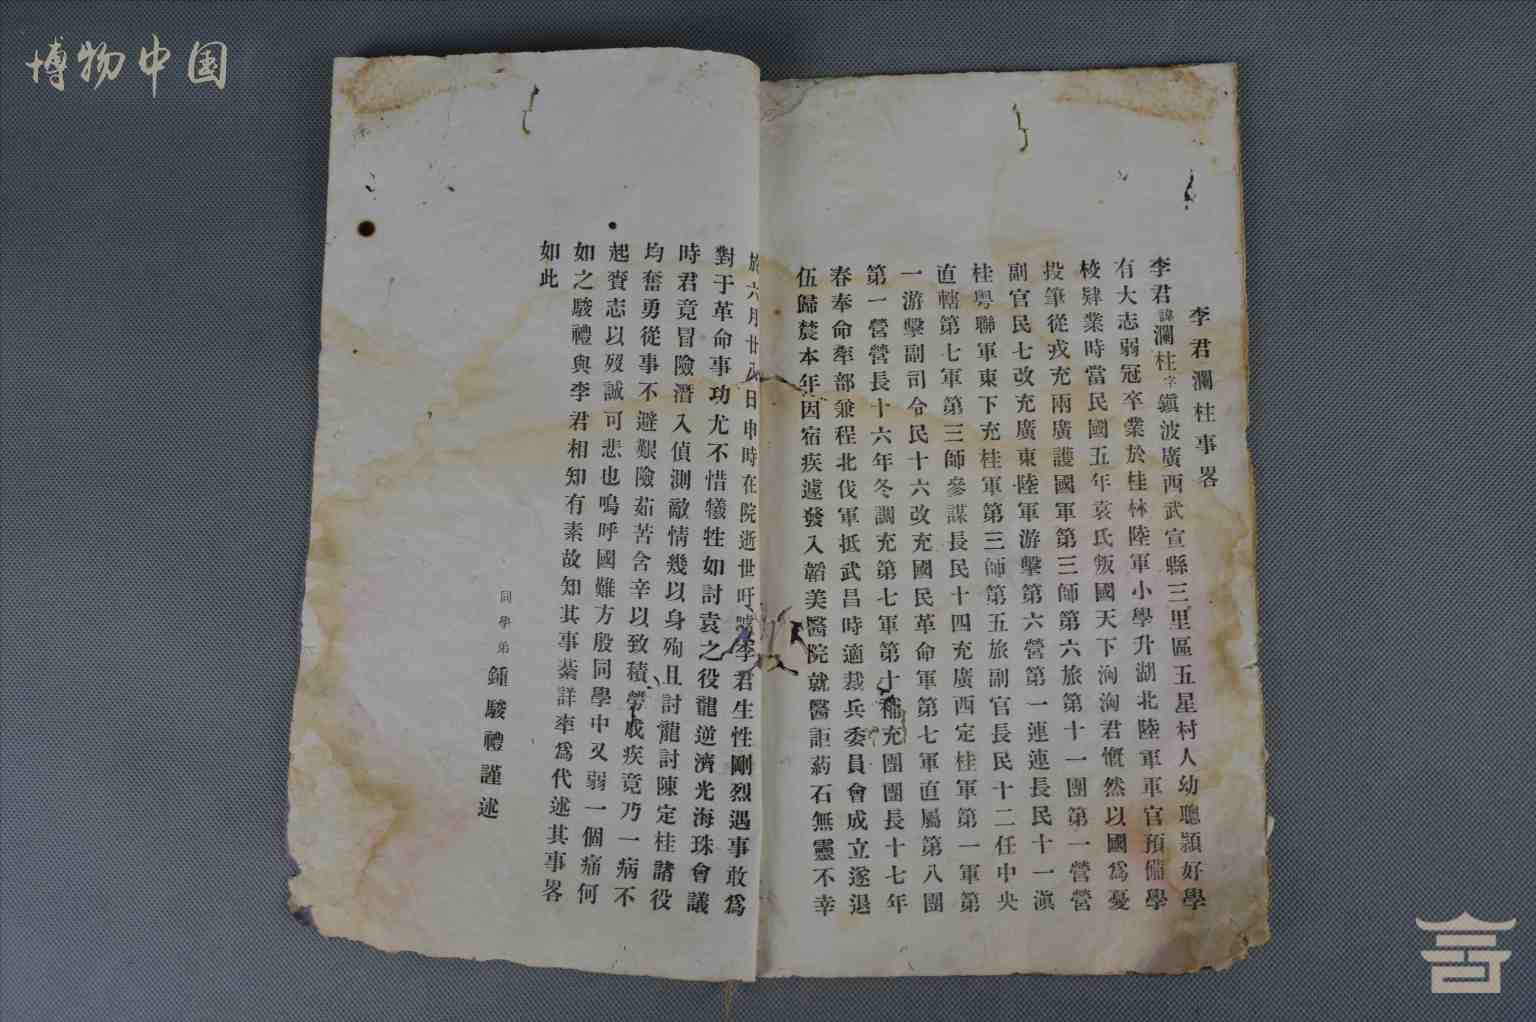 博物中国
李君瀾柱事畧
李君諱瀾柱字鎭波廣西武宣縣三里區五星村人幼聰頴好學
有大志弱冠卒業於桂林陸軍小學升湖北陸軍軍官預備學
校肄業時當民國五年袁氏叛國天下洶洶君慨然以國爲憂
投筆從戎充兩廣護國軍第三師第六旅第十一團第一營營
副官民七改充廣東陸軍游擊第六營第一連連長民十一滇
桂粤聯軍東下充桂軍第三師第五旅副官長民十二任中央
直轄第七軍第三師參謀長民十四充廣西定桂軍第一軍第
一游擊副司令民十六改充國民革命軍第七軍直屬第八團
第一營營長十六年冬調充第七軍第十補充團團長十七年
春奉命率部兼程北伐軍抵武昌時適裁兵委員會成立遂退
伍歸麓本年因宿疾遽發入韜美醫院就醫詎葯石無靈不幸
於六月廿 日申時在院逝世吁 李君生性剛烈遇事敢爲
對于革命事功尤不惜犧牲如討袁之役龍逆濟光海珠會議
時君竟冒險潛入偵測敵情幾以身殉且討龍討陳定桂諸役
均奮勇從事不避艱險茹苦含辛以致積勞成疾竟乃一病不
起賫志以歿誠可悲也嗚呼國難方殷同學中又弱一個痛何
如之駿禮與李君相知有素故知其事綦詳率爲代述其事畧
如此
同學弟鍾駿禮謹述